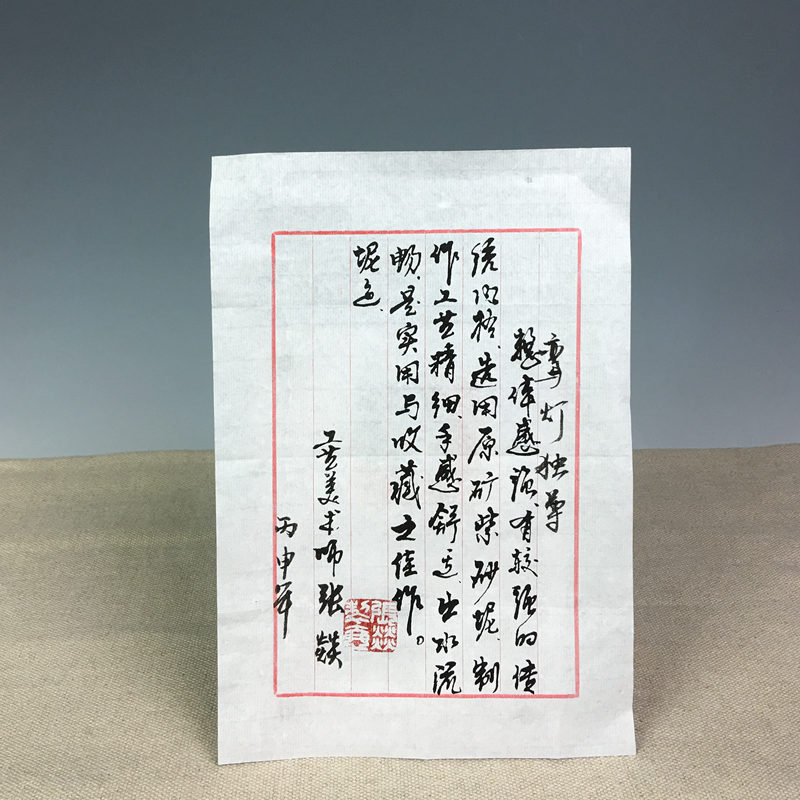 灯独尊
整体感强、有较强的传
统风格、选用原矿紫砂坭、制
作工艺精细、手感舒适、出水流
畅、是实用与收藏之佳作。
坭
工艺美术师 张燚
丙申年